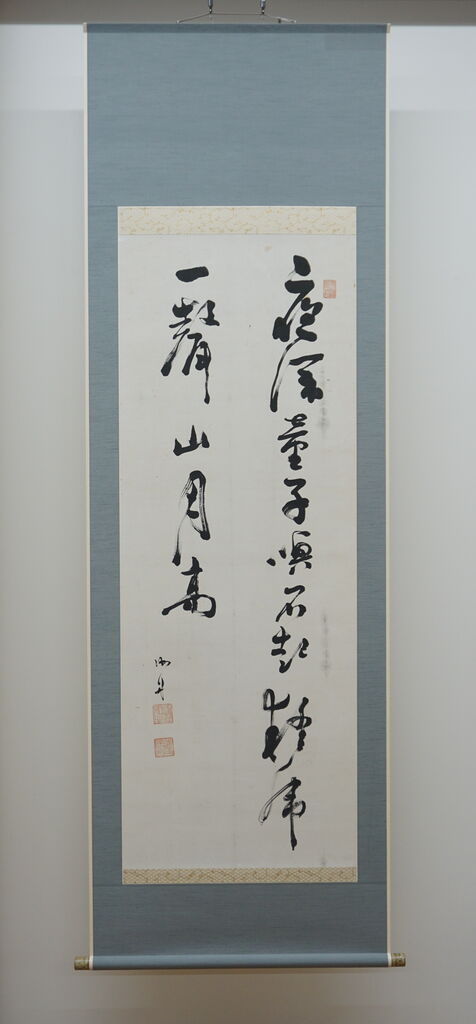 夜深童子喚不起猛虎
一聲山月高